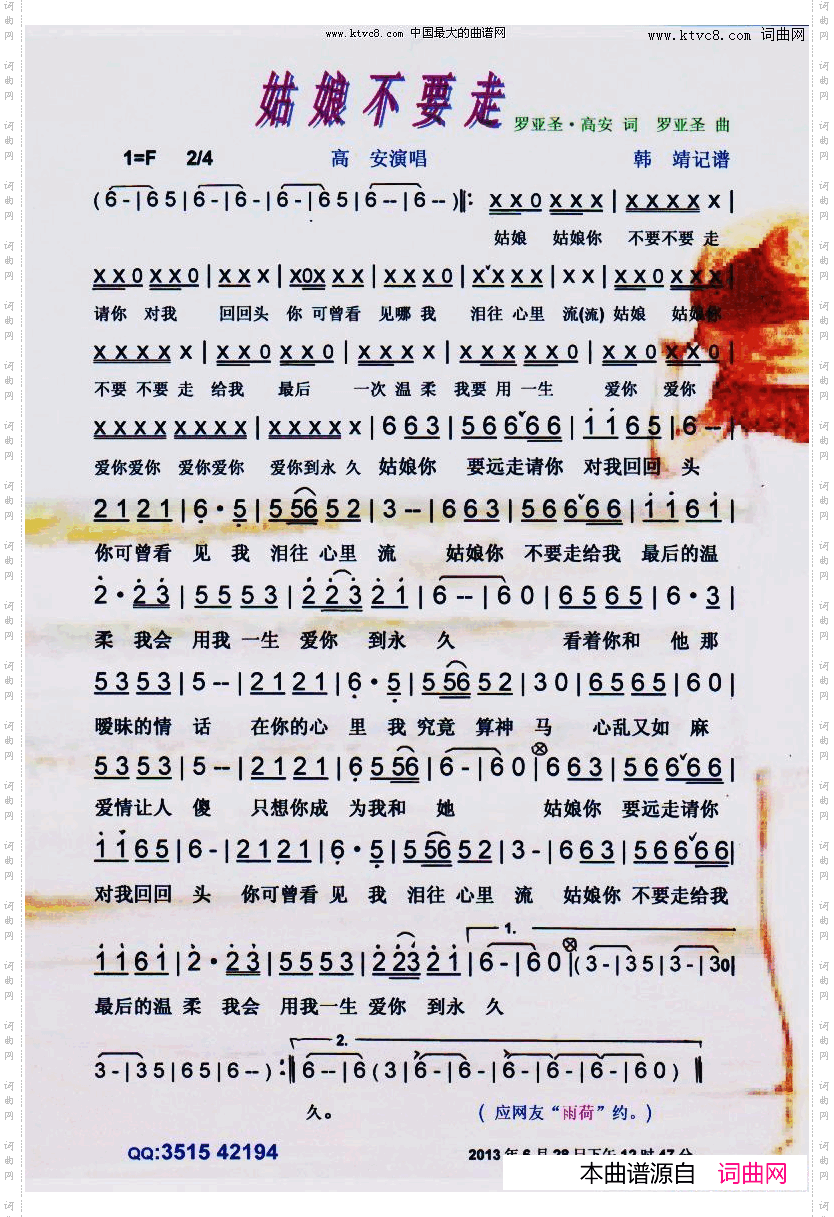 www.ktvc8.com 中国最大的曲谱网
www.ktvc8.com 词曲网
姑娘不要走
罗亚圣·高安 词 罗亚圣 曲
1=F 2/4 高 安演唱 韩 靖记谱
(6 - | 6 5 | 6 - | 6 - | 6 - | 6 5 | 6 -- | 6 -- ) ‖: X X 0 X X X | X X X X X |
姑娘 姑娘你 不要不要 走
X X 0 X X 0 | X X X | X0X X X | X X X 0 | X X X X | X X | X X 0 X X X |
请你 对我 回回头 你 可曾看 见哪 我 泪往 心里 流(流) 姑娘 姑娘你
X X X X X | X X 0 X X 0 | X X X X | X X X X X 0 | X X 0 X X 0 |
不要 不要 走 给我 最后 一次 温 柔 我要 用 一生 爱你 爱你
X X X X X X X X | X X X X X | 6 6 3 | 5 6 6 6 6 | 1 1 6 5 | 6 -- |
爱你爱你 爱你爱你 爱你到永 久 姑娘你 要远走请你 对我回回 头
2 1 2 1 | 6 · 5 | 5 56 5 2 | 3 -- | 6 6 3 | 5 6 6 6 6 | 1 1 6 1 |
你可曾看 见 我 泪往 心里 流 姑娘你 不要走给我 最后的温
2 · 2 3 | 5 5 5 3 | 2 2 3 2 1 | 6 -- | 6 0 | 6 5 6 5 | 6 · 3 |
柔 我会 用我 一生 爱你 到永 久 看着你和 他 那
5 3 5 3 | 5 -- | 2 1 2 1 | 6 · 5 | 5 56 5 2 | 3 0 | 6 5 6 5 | 6 0 |
暧昧的情 话 在你的心 里 我 究竟 算神 马 心乱又如 麻
5 3 5 3 | 5 -- | 2 1 2 1 | 6 5 56 | 6 - | 6 0 | 6 6 3 | 5 6 6 6 6 |
爱情让人 傻 只想你成 为我和 她 姑娘你 要远走请你
1 1 6 5 | 6 - | 2 1 2 1 | 6 · 5 | 5 56 5 2 | 3 - | 6 6 3 | 5 6 6 6 6 |
对我回回 头 你可曾看 见 我 泪往 心里 流 姑娘你 不要走给我
1.
1 1 6 1 | 2 · 2 3 | 5 5 5 3 | 2 23 2 1 | 6 - | 6 0 | ( 3 - | 3 5 | 3 - | 3 0 |
最后的温 柔 我会 用我一生 爱你 到永 久
2.
3 - | 3 5 | 6 5 | 6 -- ) :‖ 6 -- | 6 ( 3 | 6 - | 6 - | 6 - | 6 - | 6 - | 6 0 ) ‖
久。 ( 应网友“雨荷”约。)
QQ:3515 42194
2013 年 6 月 28 日下午 12 时 47 分
本曲谱源自 词曲网